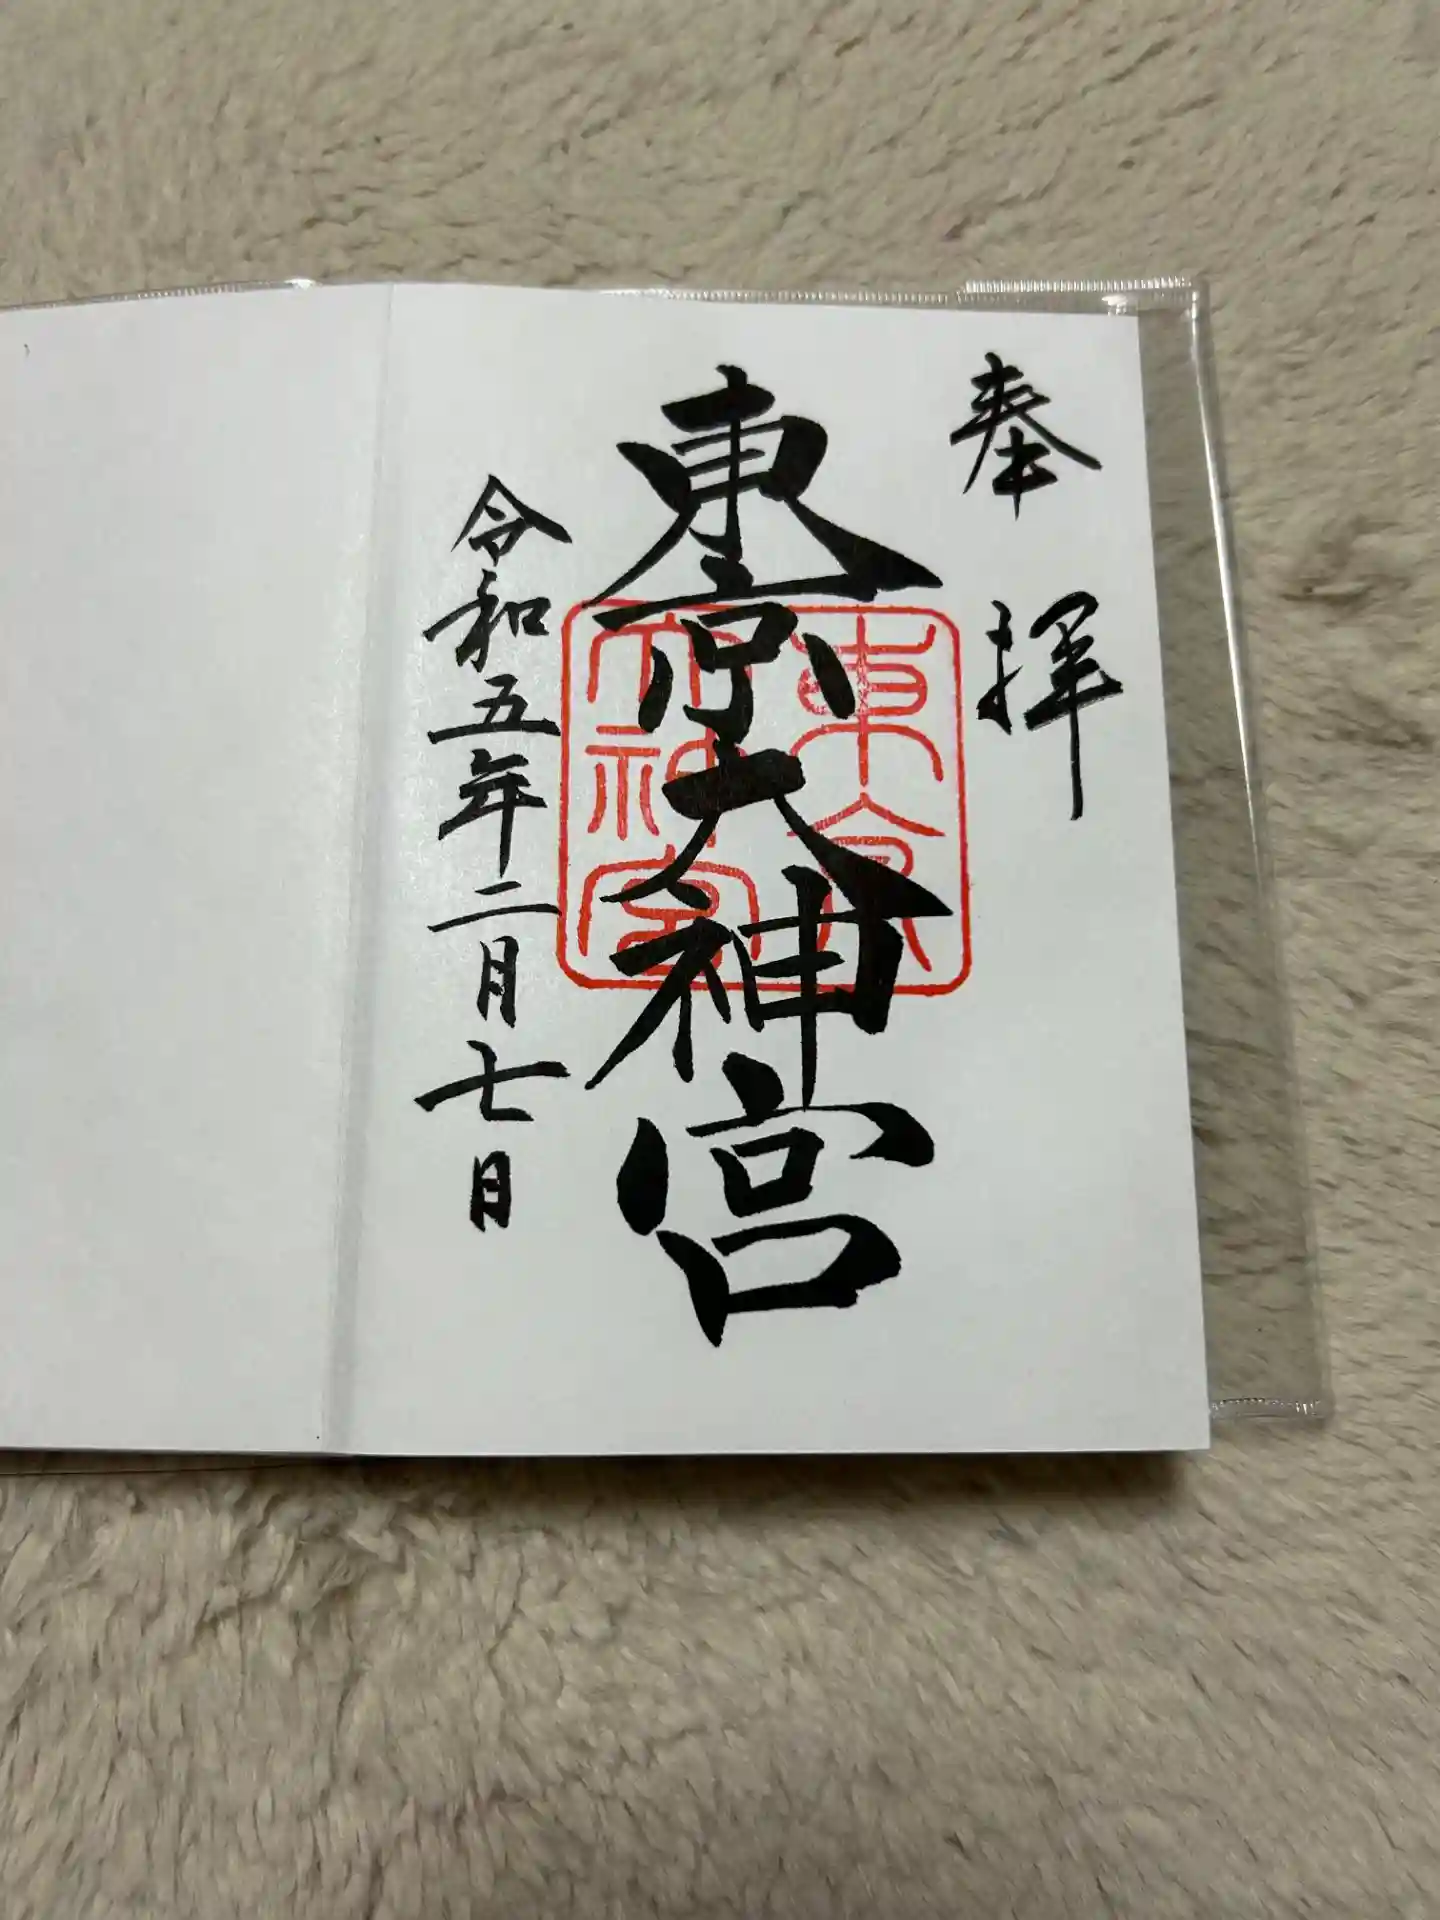 奉拝
東京大神宮
東京大神宮
令和五年二月七日